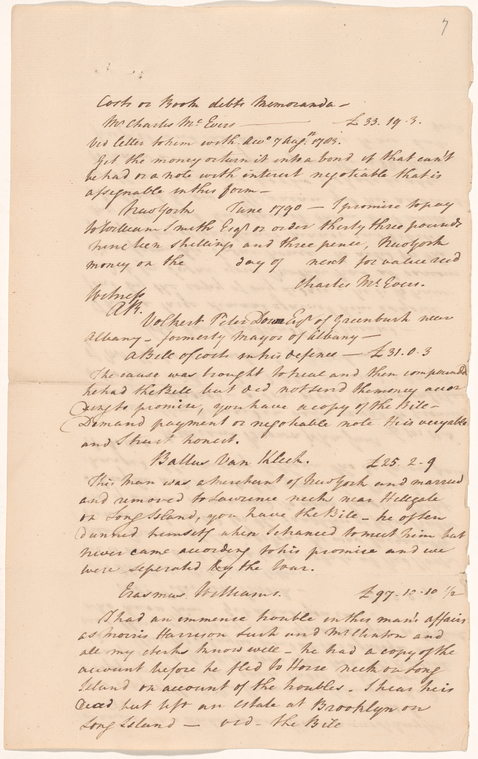 7
Costs or Book debts Memoranda —
Mr Charles Mc Evers — £33. 19. 3.
Vid letter to him with Acco 7 Augst 1783.
Get the money or turn it into a bond if that can't
be had or a note with interest negotiable that is
assignable in this form —
New York June 1790 — I promise to pay
to William Smith Esqr or order thirty three pounds
nineteen shillings and three pence, New York
money on the day of next for value recd
Charles Mc Evers.
Witness
AB.
Volkert Peter Douw Esqr of Greenbush near
Albany — formerly Mayor of Albany —
A Bill of costs in his defence — £31. 0. 3
The cause was brought to trial and then compounded
he had the Bill but did not send the money accor
ding to promise, you have a copy of the Bill —
Demand payment or negotiable note He is very able
and I trust honest.
Baltus Van Kleek. £25. 2. 9
This man was a merchant of New York and married
and removed to Lawrence neck near Hellgate
on Long Island, you have the Bill — he often
dunned himself when I chanced to meet him but
never came according to his promise and we
were seperated by the War.
Erasmus Williams. £97. 10. 10 1/2
I had an immence trouble in this man's affairs
as Morris Harrison Lush and McClinton and
all my clerks know well — he had a copy of the
account before he fled to Horse neck on Long
Island on account of the troubles. I hear he is
dead but left an estate at Brooklyn on
Long Island — vid. the Bill